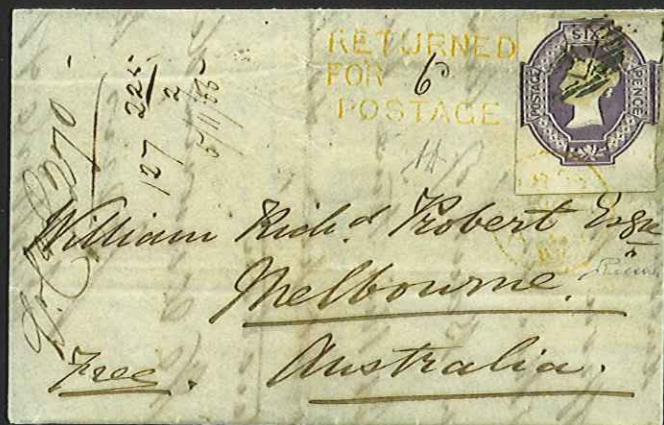 RETURNED
FOR 6D
POSTAGE
SIX
POSTAGE
PENCE
127 225
2
5/11/55
William Richd. Probert Esqre
Melbourne.
Free. Australia.